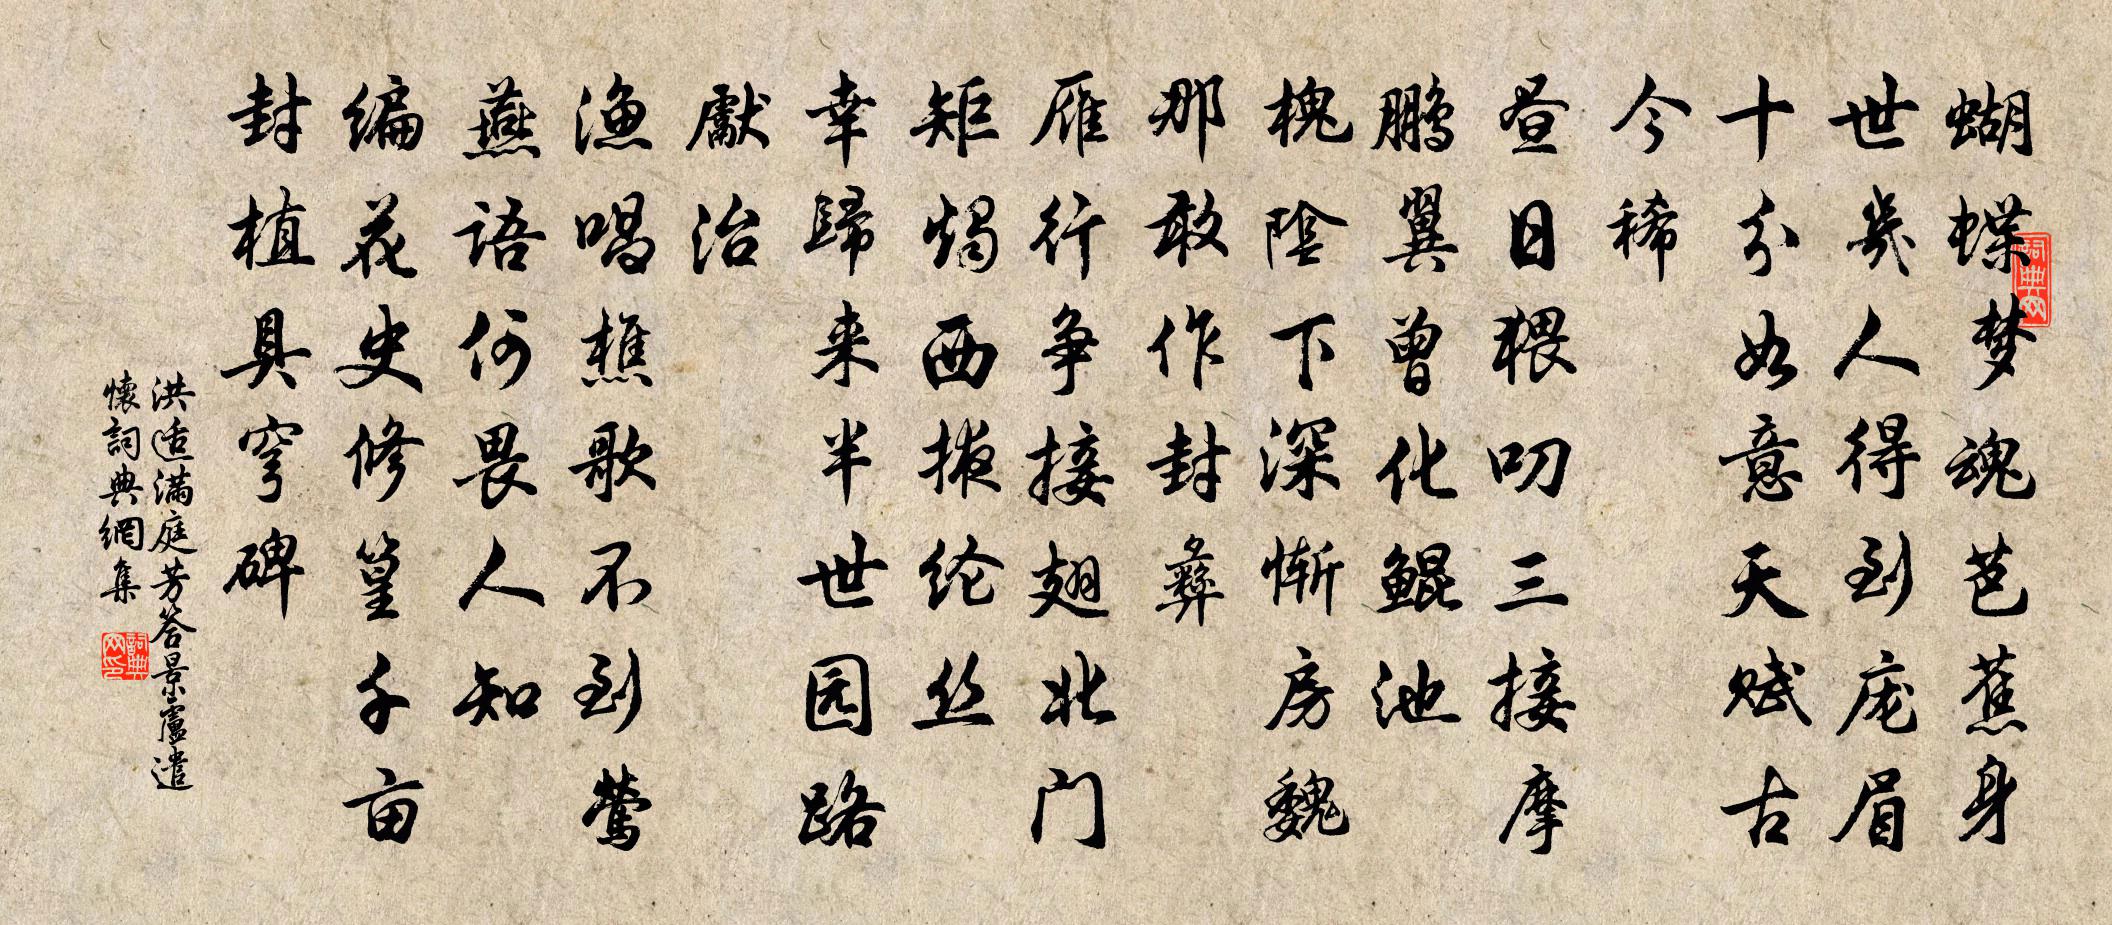 蝴蝶梦魂芭蕉身
世幾人得到庞眉
十分如意天赋古
今稀
昼日猥叨三接摩
鹏翼曾化鲲池
槐陰下深惭房魏
那敢作封彝
雁行争接翅北门
矩燭西掖纶丝
幸歸来半世园路
獻治
渔唱樵歌不到莺
燕语何畏人知
编花史修篁千亩
封植具穹碑
洪适满庭芳答景盧遣
懷詞典網集
詞典网
詞典网印